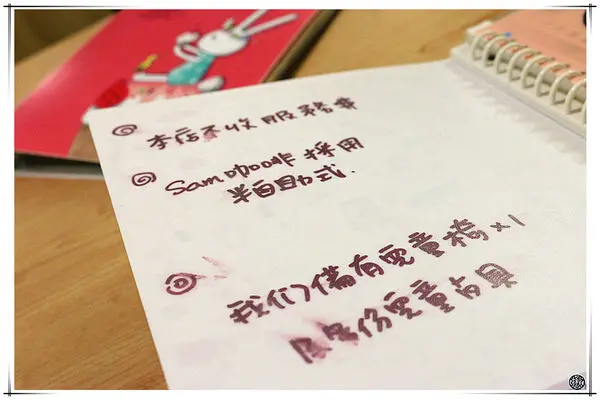 本店不收服務費
Sam咖啡採用
半自助式.
我们備有兒童椅x1
及多份兒童歺具